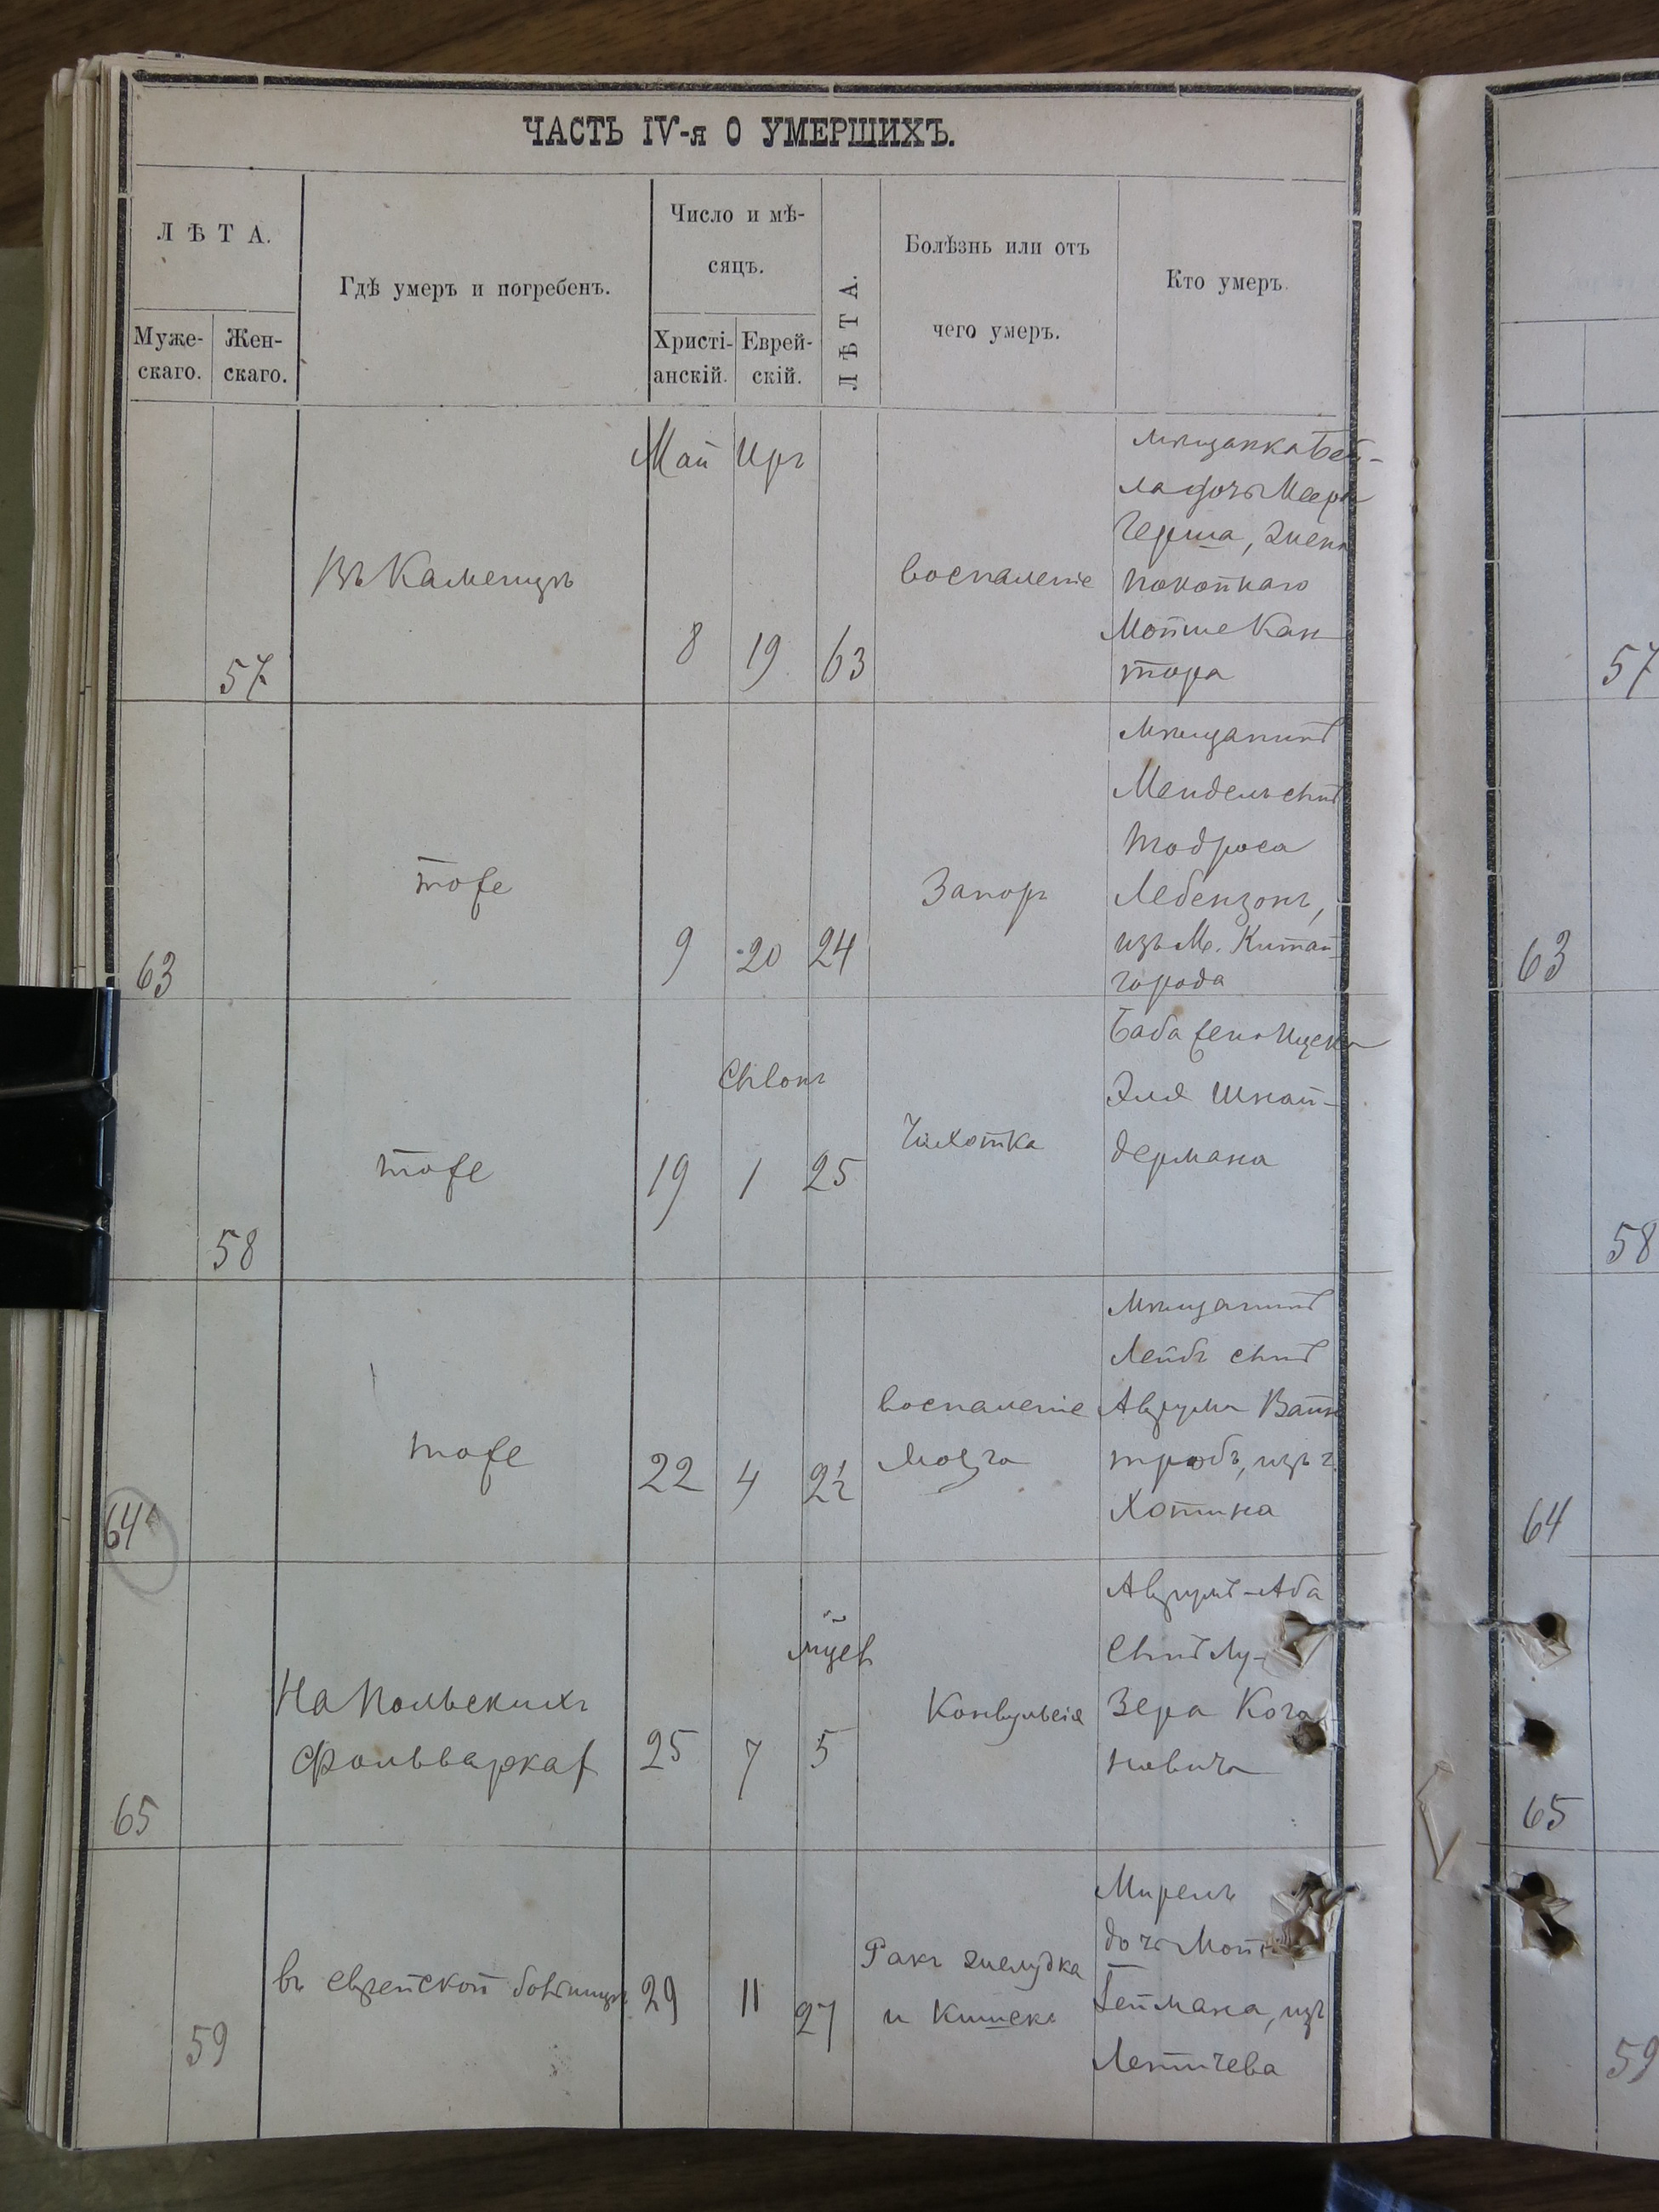 ЧАСТЬ IV-я О УМЕРШИХЪ.
ЛѢТА.
Муже-
скаго.
Жен-
скаго.
Гдѣ умеръ и погребенъ.
Число и мѣ-
сяцъ.
Христі-
анскій.
Еврей-
скій.
ЛѢТА.
Болѣзнь или отъ
чего умеръ.
Кто умеръ.
57
Въ Каменцѣ
Май Иръ
8 19 63
воспаленіе
мѣщанка Бей-
ла дочь Меера
Герша, жена
покойнаго
Мотше Кан
тора
57
63
тоже
9 20 24
Запоръ
мѣщанинъ
Мендель сынъ
Тодроса
Лебензонъ,
изъ М. Китай-
города
63
58
тоже
Сывонъ
19 1 25
Чихотка
Баба жена Ицека
Эля Шнай-
дермана
58
64
тоже
22 4 2½
воспаленіе
мозга
мѣщанинъ
Лейбъ сынъ
Аврума Вайн
тробъ, изъ г.
Хотина
64
65
На Польскихъ
Фольваркахъ
25 7 5
мѣсе
Конвульсія
Аврумъ-Аба
сынъ Лу-
зера Кога
новича
65
59
въ еврейской больницѣ
29 11 27
Ракъ желудка
и кишекъ
Мирель
дочь
Геймана, изъ
Летичева
59